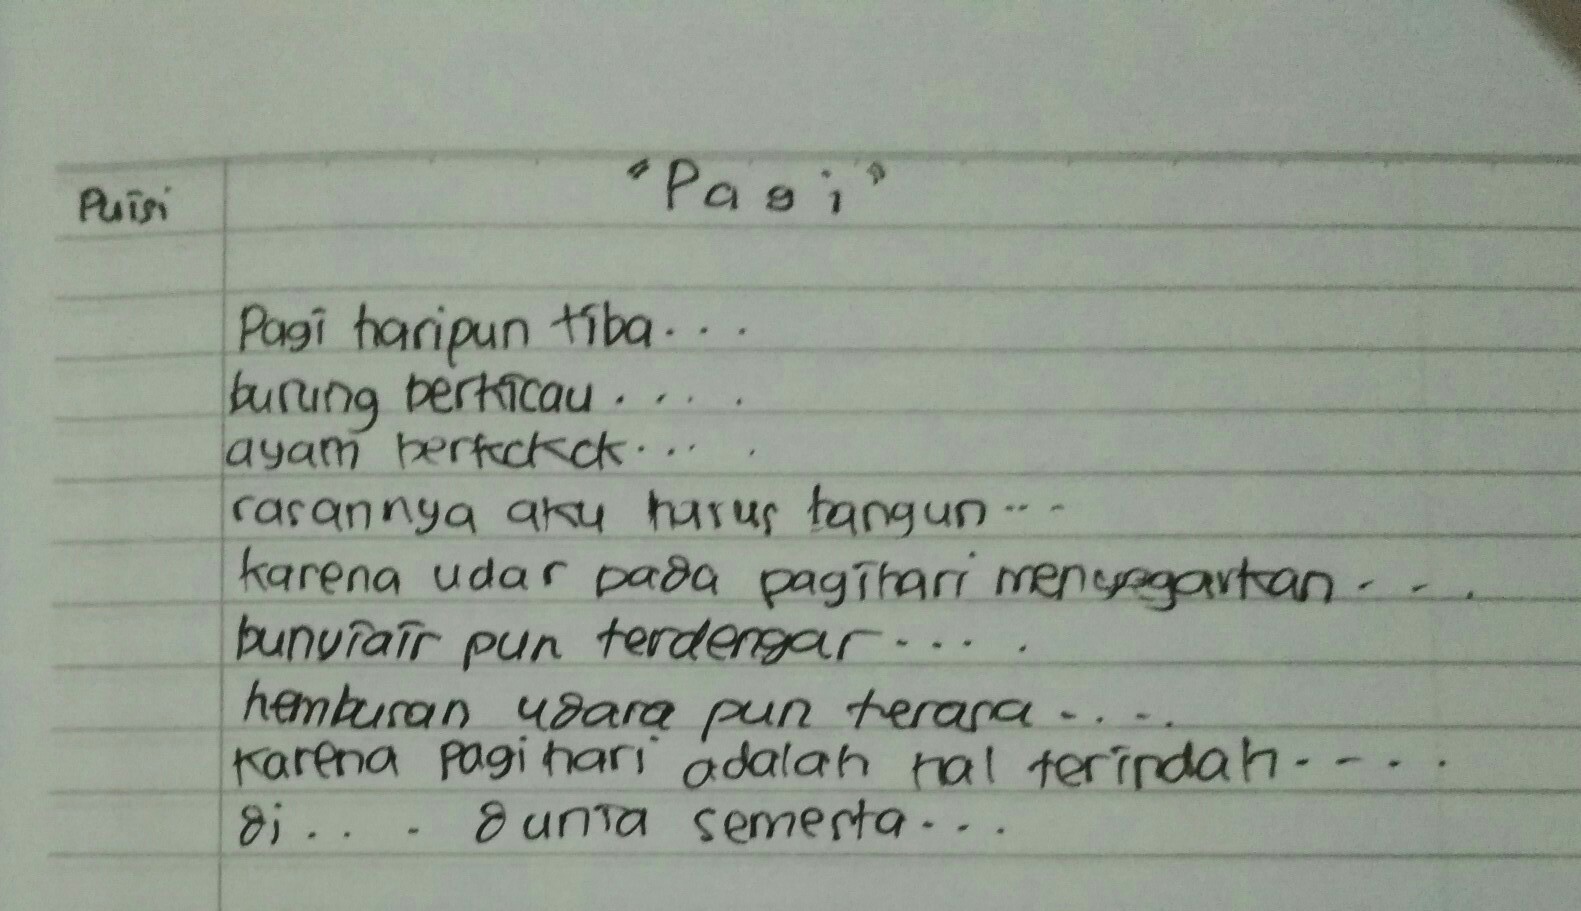 Puisi
"Pagi"
Pagi haripun tiba...
burung berkicau....
ayam berkokok....
rasannya aku harus bangun...
karena udar pada pagihari menyegarkan...
bunyiair pun terdengar....
hembusan udara pun terasa....
karena pagi hari adalah hal terindah....
di... dunia semesta...